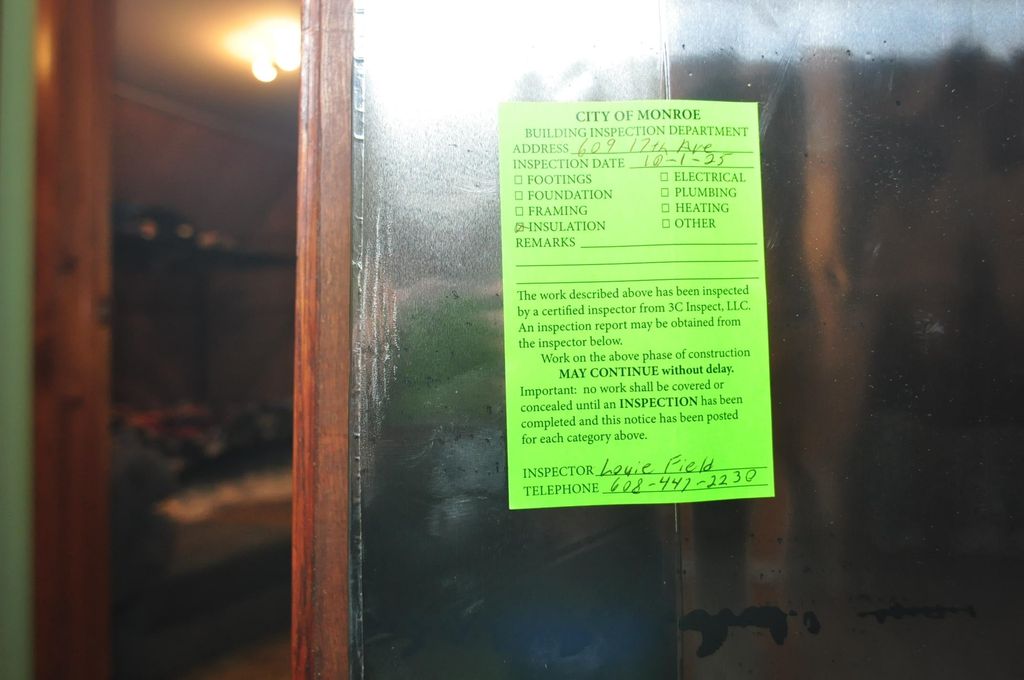 CITY OF MONROE
BUILDING INSPECTION DEPARTMENT
ADDRESS 609 17th Ave
INSPECTION DATE 10-1-25
☐ FOOTINGS ☐ ELECTRICAL
☐ FOUNDATION ☐ PLUMBING
☐ FRAMING ☐ HEATING
☑ INSULATION ☐ OTHER
REMARKS
The work described above has been inspected
by a certified inspector from 3C Inspect, LLC.
An inspection report may be obtained from
the inspector below.
Work on the above phase of construction
MAY CONTINUE without delay.
Important: no work shall be covered or
concealed until an INSPECTION has been
completed and this notice has been posted
for each category above.
INSPECTOR Louie Field
TELEPHONE 608-447-2230